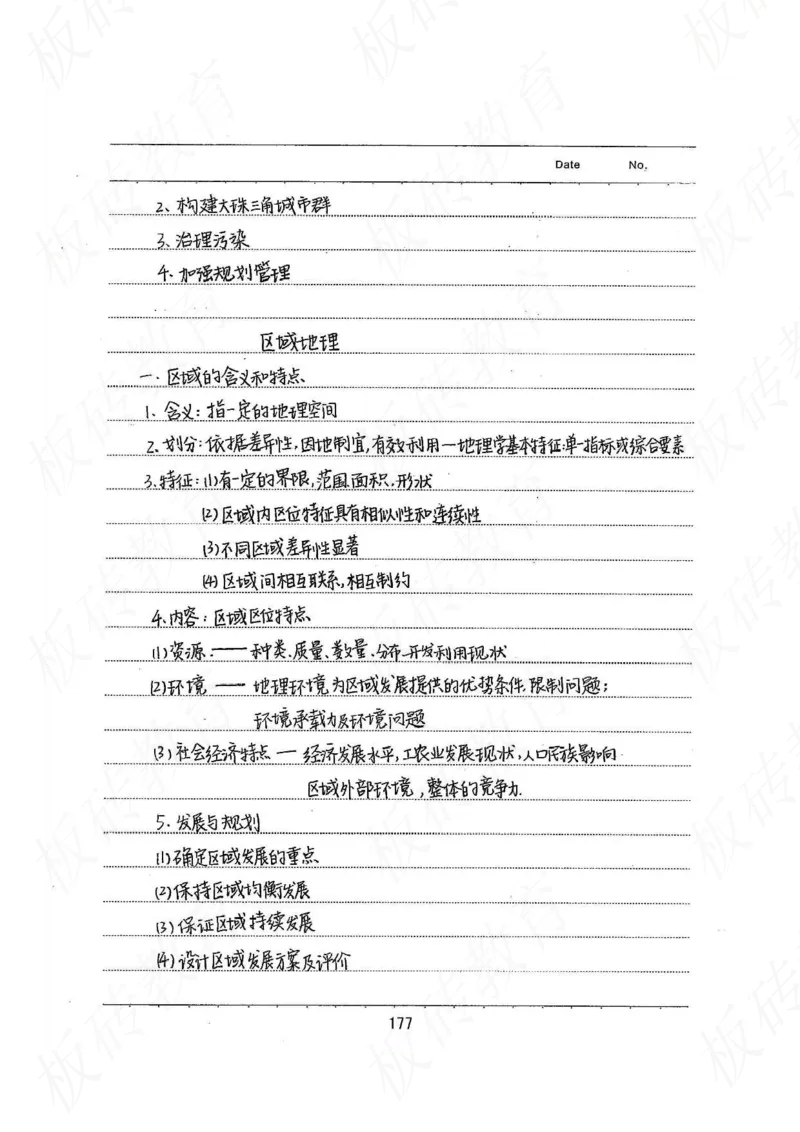 Date No.
2、构建大珠三角城市群
3、治理污染
4、加强规划管理
区域地理
一、区域的含义和特点
1、含义：指一定的地理空间
2、划分：依据差异性,因地制宜,有效利用一地理学基本特征:单一指标或综合要素
3、特征：(1)有一定的界限,范围,面积,形状
(2)区域内区位特征具有相似性和连续性
(3)不同区域差异性显著
(4)区域间相互联系,相互制约
4、内容：区域区位特点
(1)资源：——种类、质量、数量、分布、开发利用现状
(2)环境 —— 地理环境为区域发展提供的优势条件、限制问题；
环境承载力及环境问题
(3)社会经济特点 — 经济发展水平,工农业发展现状,人口民族影响
区域外部环境,整体的竞争力.
5.发展与规划
(1)确定区域发展的重点
(2)保持区域均衡发展
(3)保证区域持续发展
(4)设计区域发展方案及评价
177
板砖教育